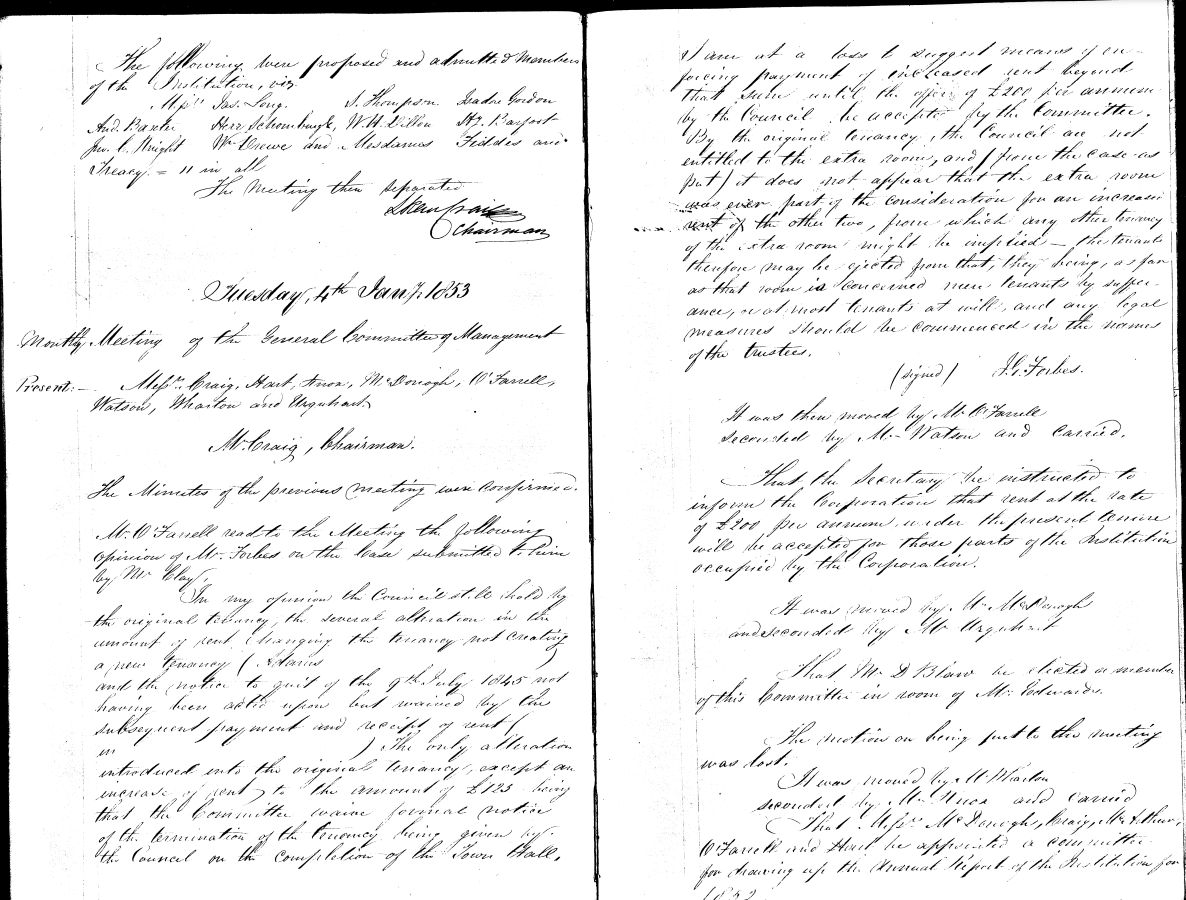 The following were proposed and admitted Members
of the Institution, viz.
Messrs Jas. Long. J. Thompson Isadore Gordon
And. Baxter Herr Schomburgk, W. H. Dillon H. J. Barfoot
Jno. C. Knight Wm Crewe and Mesdames Fiddes and
Treacy = 11 in all
The Meeting then separated
Skene Craig
Chairman
Tuesday, 4th Jany. 1853
Monthly Meeting of the General Committee of Management
Present:- Messrs. Craig, Hart, Knox, McDonogh, O'Farrell,
Watson, Wharton and Urquhart
Mr Craig, Chairman.
The Minutes of the previous meeting were confirmed.
Mr. O'Farrell read to the Meeting the following
opinion of Mr. Forbes on the Case submitted to him
by Mr Clay.
In my opinion the Council still hold by
the original tenancy, the several alteration in the
amount of rent changing the tenancy not creating
a new tenancy (Adams )
and the notice to quit of the 9th July 1845 not
having been acted upon but waived by the
subsequent payment and receipt of rent (
in ) The only alteration
introduced into the original tenancy, except an
increase of rent, to the amount of £125 being
that the Committee waive formal notice
of the termination of the tenancy being given by
the Council on the completion of the Town Hall.
I am at a loss to suggest means of en-
forcing payment of increased rent beyond
that sum until the offer of £200 per annum
by the Council be accepted by the Committee.
By the original tenancy, the Council are not
entitled to the extra room, and (from the case as
put) it does not appear that the extra room
was ever part of the consideration for an increased
rent of the other two, from which any other tenancy
of the extra room might be implied — the tenants
therefore may be ejected from that, they being, as far
as that room is concerned mere tenants by suffer-
ance, or at most tenants at will, and any legal
measures should be commenced in the names
of the trustees.
(signed) J. G. Forbes.
It was then moved by Mr O'Farrell
seconded by Mr. Watson and carried.
That the Secretary be instructed to
inform the Corporation that rent at the rate
of £200 per annum under the present tenure
will be accepted for those parts of the Institution
occupied by the Corporation.
It was moved by Mr McDonogh
and seconded by Mr Urquhart
That Mr D Blair be elected a member
of this Committee in room of Mr. Edwards.
The motion on being put to the meeting
was lost.
It was moved by Mr Wharton
seconded by Mr Knox and carried
That Messrs. McDonogh, Craig, McArthur,
O'Farrell and Hart be appointed a committee
for drawing up the Annual Report of the Institution for
1852